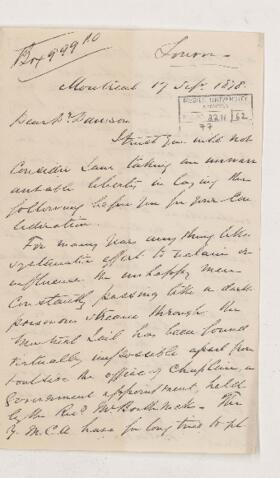 Box 999 A0
Montreal 17 Sept. 1878
McGILL UNIVERSITY
ARCHIVES
2211 62
77
Dear Dr Dawson
I trust you will not
consider I am taking an unwarr-
antable liberty in laying the
following before you for your Con-
sideration.
For many years anything like
systematic effort to reclaim or
influence the unhappy men
constantly passing like a dark
poisonous stream through the
Montreal Jail has been found
virtually impossible apart from
& outside the office of Chaplain, a
government appointment, held
by the Revd Mr. The
Y.M.C.A have for long tried to